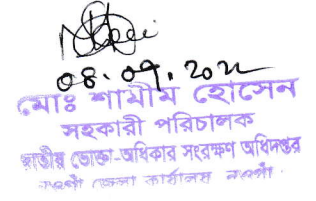 ০৪.০৭.২০২২
মোঃ শামীম হোসেন
সহকারী পরিচালক
জাতীয় ভোক্তা-অধিকার সংরক্ষণ অধিদপ্তর
নওগাঁ জেলা কার্যালয় নওগাঁ।